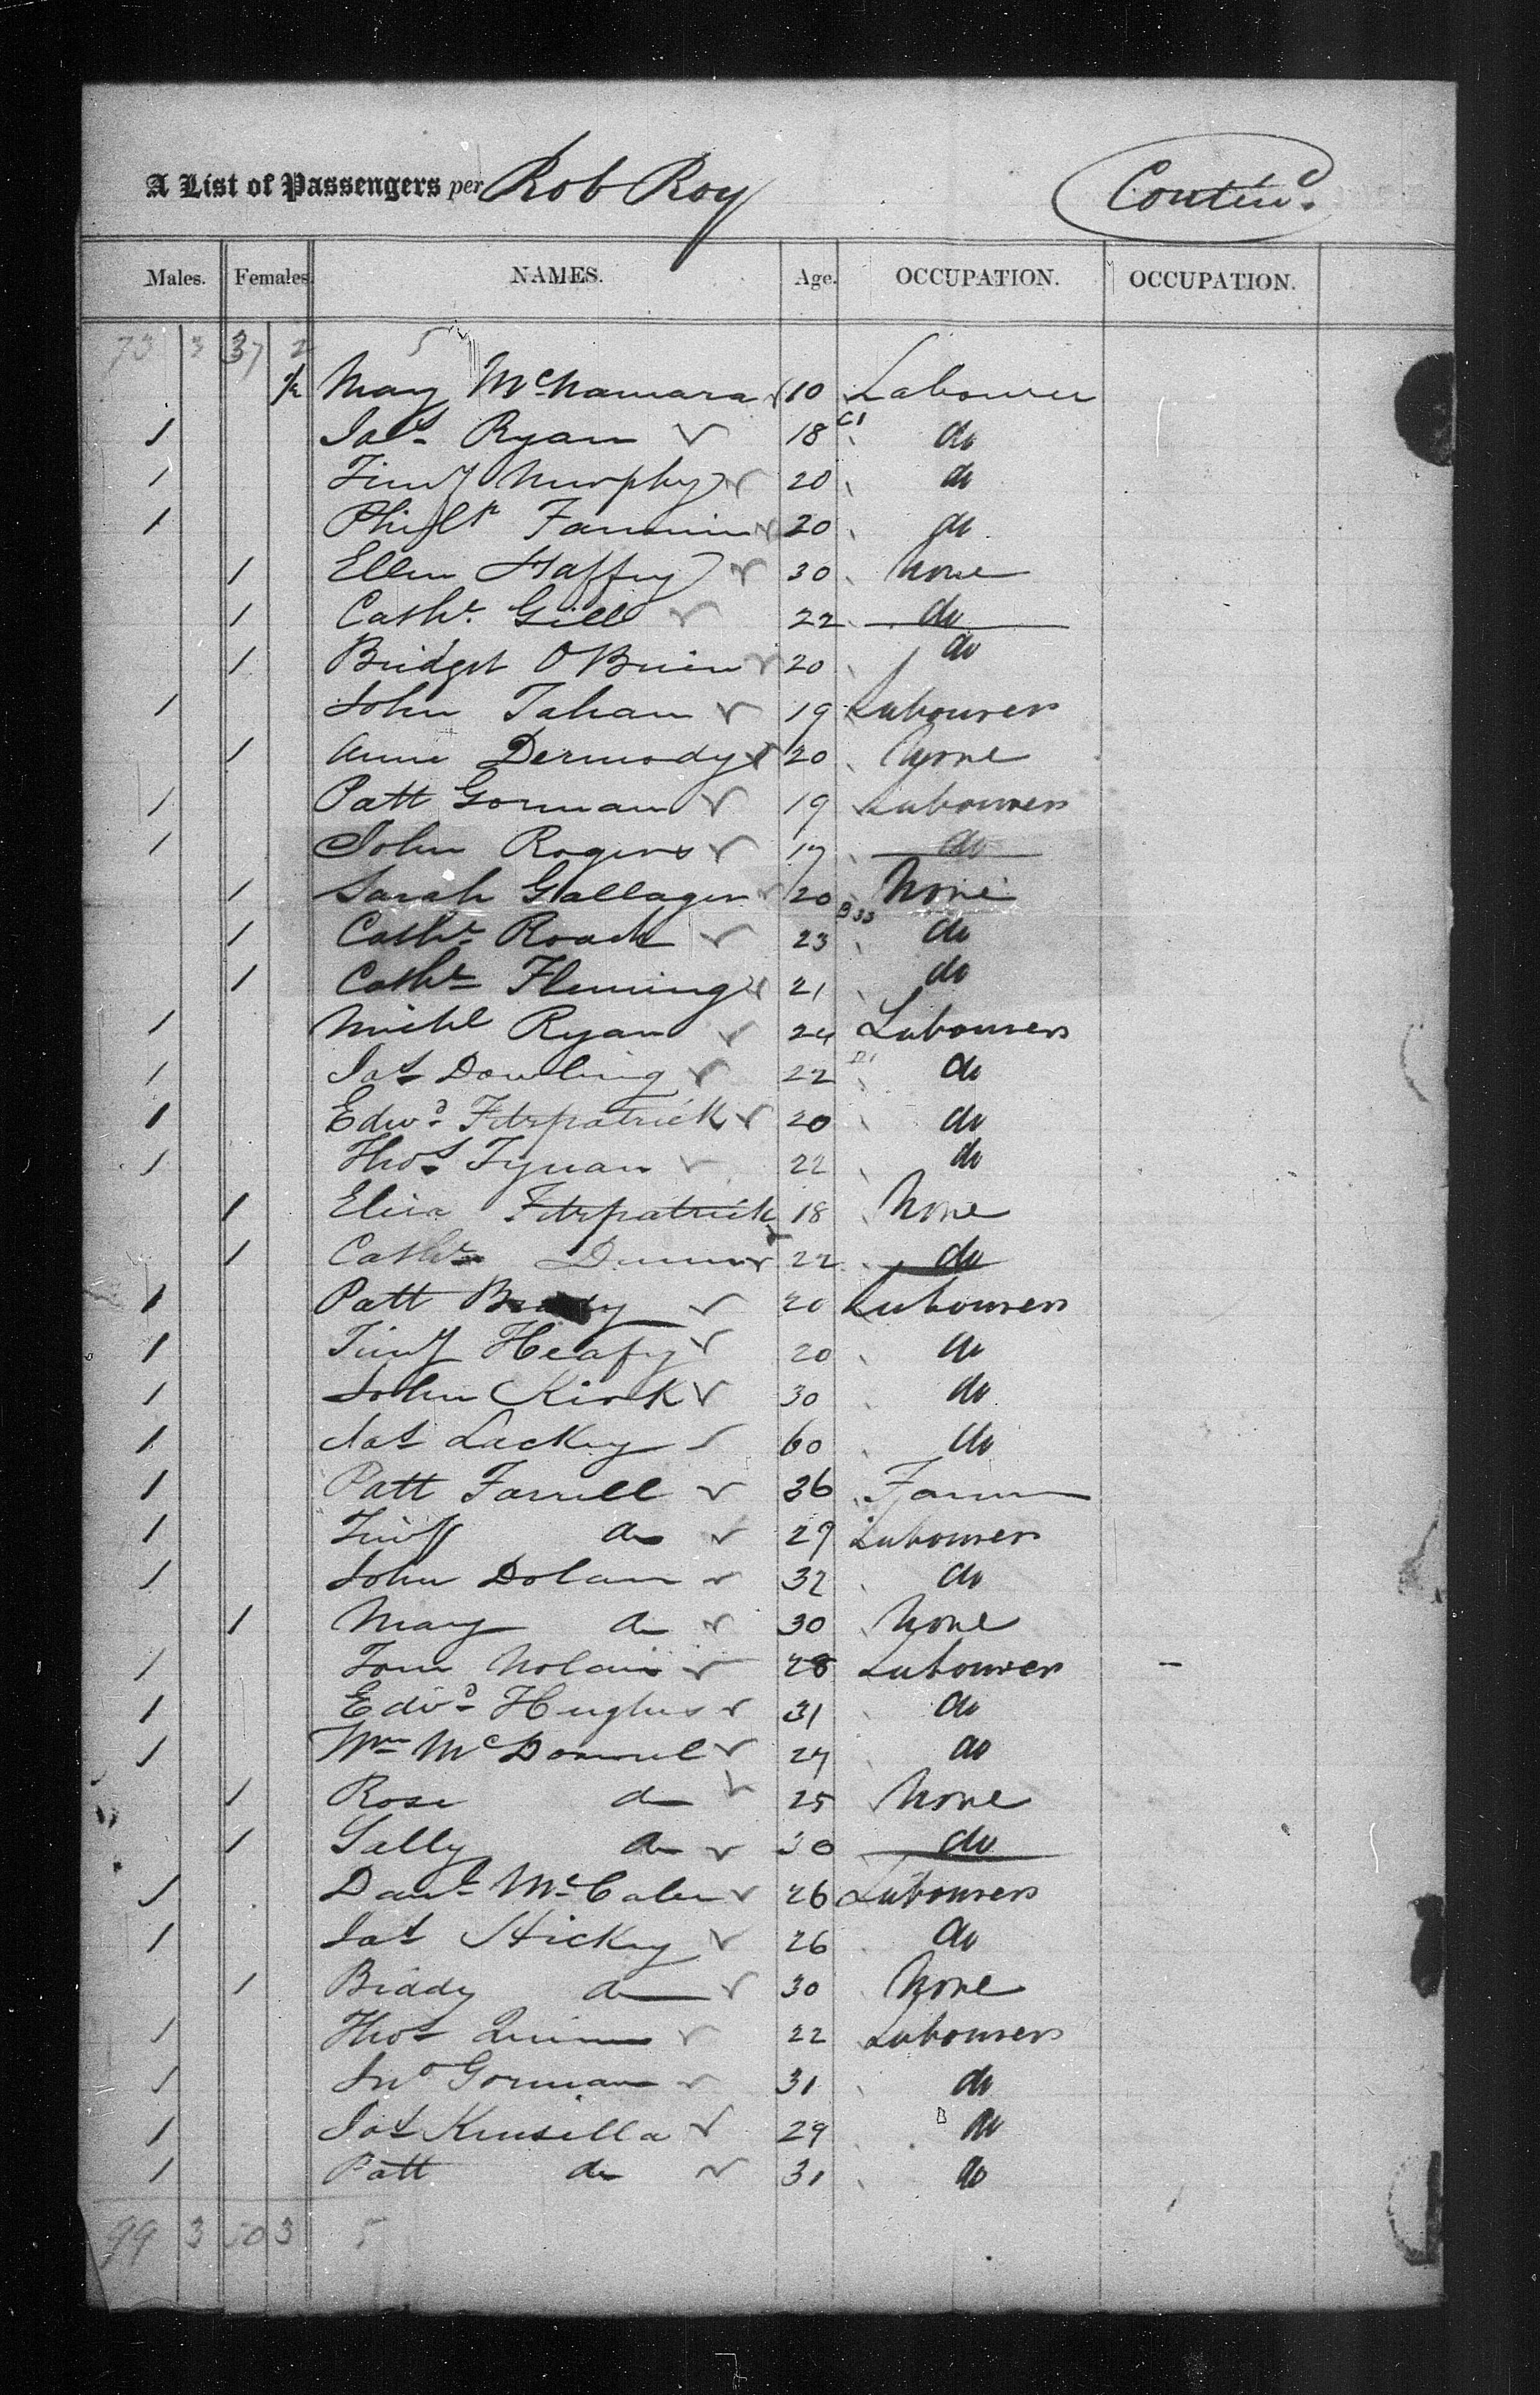 A List of Passengers per Rob Roy Contin.d
Males. Females. NAMES. Age. OCCUPATION. OCCUPATION.
73 3 37 2 5
Mary McNamara 10 Labourer
1 Jas Ryan 18 C1 do
1 Timy Murphy 20 do
1 Fannin 20 do
1 Ellen Haffey 30 None
1 Cathe Gill 22 do
1 Bridget OBrien 20 do
1 John Tahan 19 Labourer
1 Anne Dermody 20 None
1 Patt Gorman 19 Labourer
1 John Rogers 17 do
1 Sarah Gallager 20 None
1 Cathe Roach 23 B33 do
1 Cathe Fleming 21 do
1 Michl Ryan 24 Labourer
1 Jas Dowling 22 do
1 Edwd Fitzpatrick 20 do
1 Thos Tynan 22 do
1 Eliza Fitzpatrick 18 None
1 Cathe Dunne 22 do
1 Patt Brady 20 Labourer
1 Timy Heafy 20 do
1 John Kirk 30 do
1 Jas Lackey 60 do
1 Patt Farrell 36 Farmer
1 Timy do 29 Labourer
1 John Dolan 32 do
1 Mary do 30 None
1 Tom Nolan 28 Labourer
1 Edwd Hughes 31 do
1 Wm McDonnel 27 do
1 Rose do 25 None
1 Sally do 30 do
1 Danl McCabe 26 Labourer
1 Jas Hickey 26 do
1 Biddy do 30 None
1 Thos Quinn 22 Labourer
1 Jno Gorman 31 do
1 Jas Kinsilla 29 do
1 Patt do 31 do
99 3 50 3 5